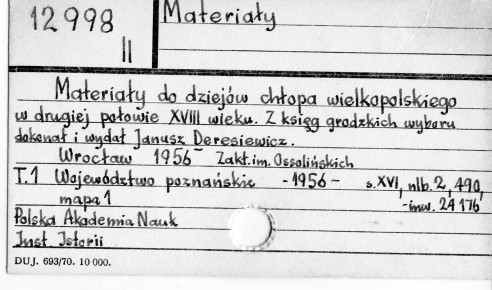 12998
II
Materiały
Materiały do dziejów chłopa wielkopolskiego
w drugiej połowie XVIII wieku. Z ksiąg grodzkich wyboru
dokonał i wydał Janusz Deresiewicz.
Wrocław 1956 Zakł. im. Ossolińskich
T.1 Województwo poznańskie -1956- s. XVI, nlb. 2, 490,
mapa 1 -inw. 24176
Polska Akademia Nauk
Inst. Istorii
DUJ. 693/70. 10 000.